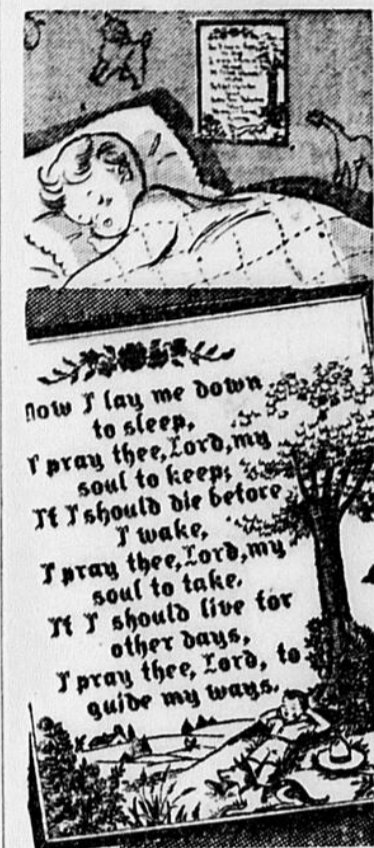 Now I lay me down
to sleep,
I pray thee, Lord, my
soul to keep;
If I should die before
I wake,
I pray thee, Lord, my
soul to take.
If I should live for
other days,
I pray thee, Lord, to
guide my ways.